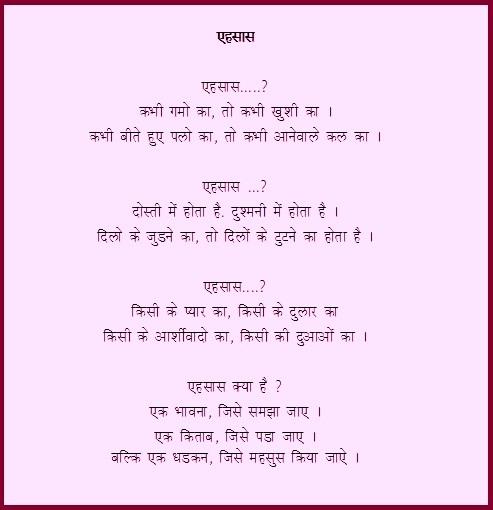 एहसास
एहसास.....?
कभी गमो का, तो कभी खुशी का ।
कभी बीते हुए पलो का, तो कभी आनेवाले कल का ।
एहसास ...?
दोस्ती में होता है. दुश्मनी में होता है ।
दिलो के जुडने का, तो दिलों के टुटने का होता है ।
एहसास....?
किसी के प्यार का, किसी के दुलार का
किसी के आर्शीवादो का, किसी की दुआओं का ।
एहसास क्या है ?
एक भावना, जिसे समझा जाए ।
एक किताब, जिसे पडा जाए ।
बल्कि एक धडकन, जिसे महसुस किया जाऐ ।